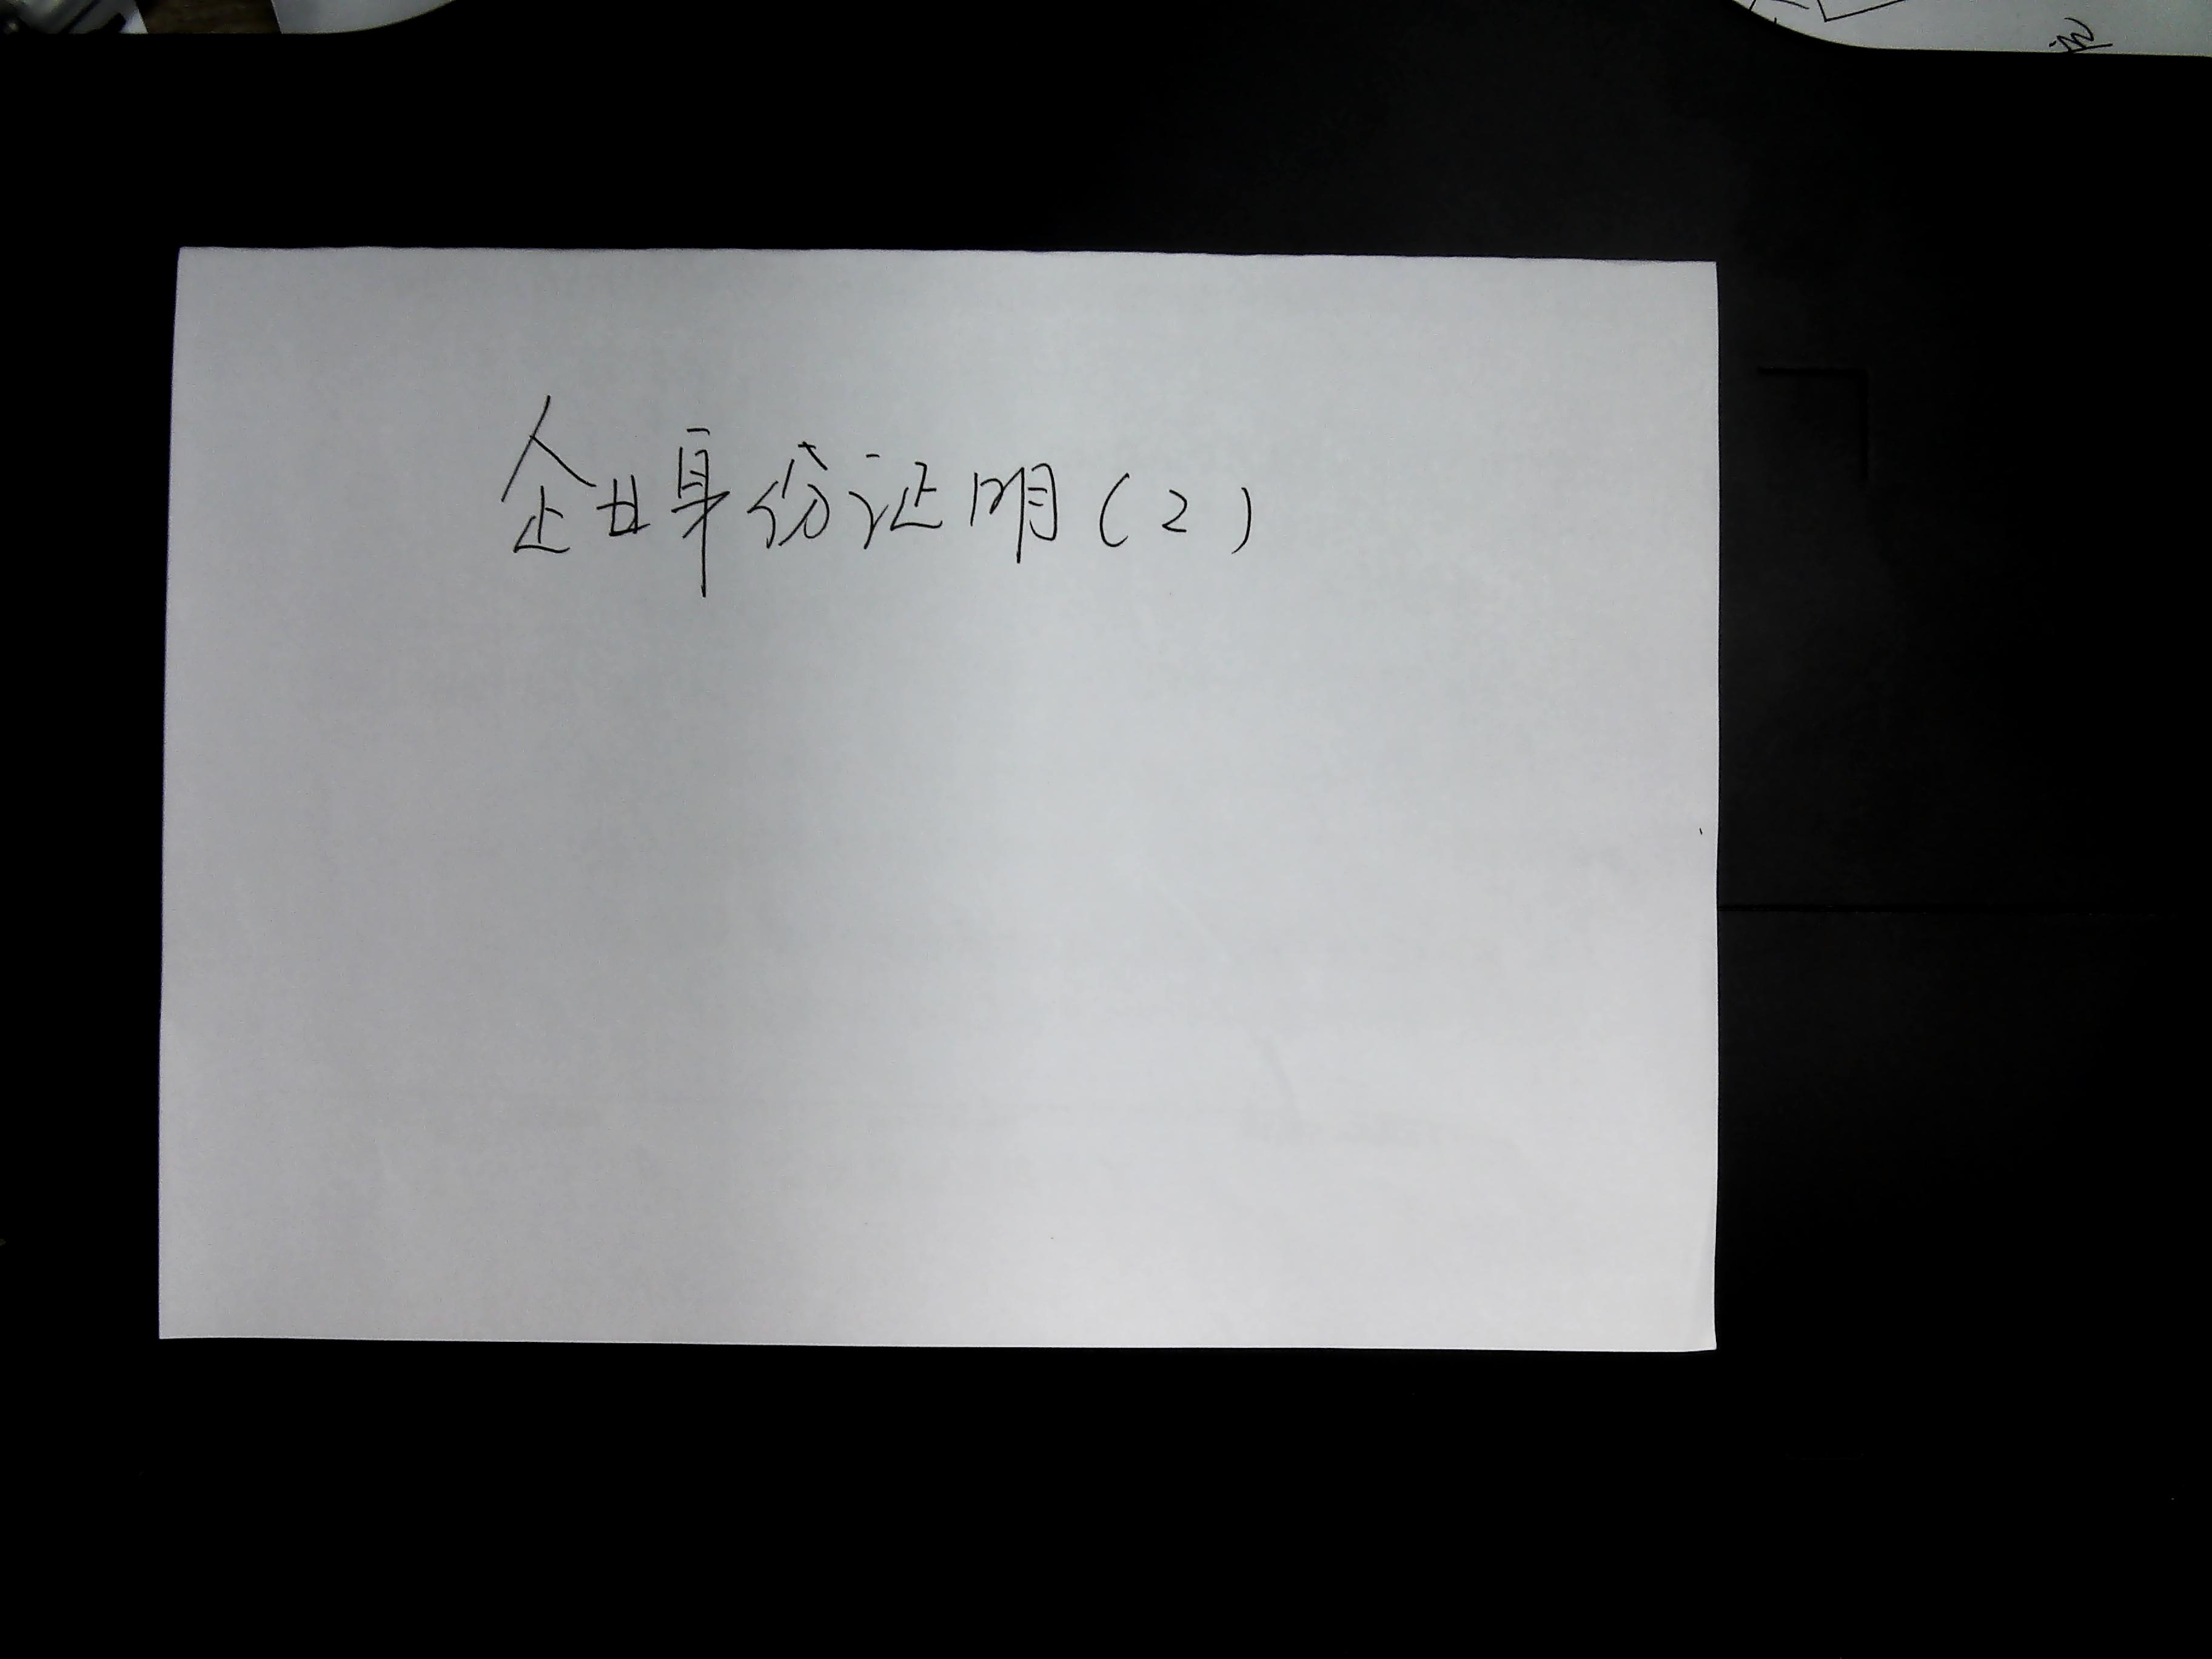 企业身份证明(2)